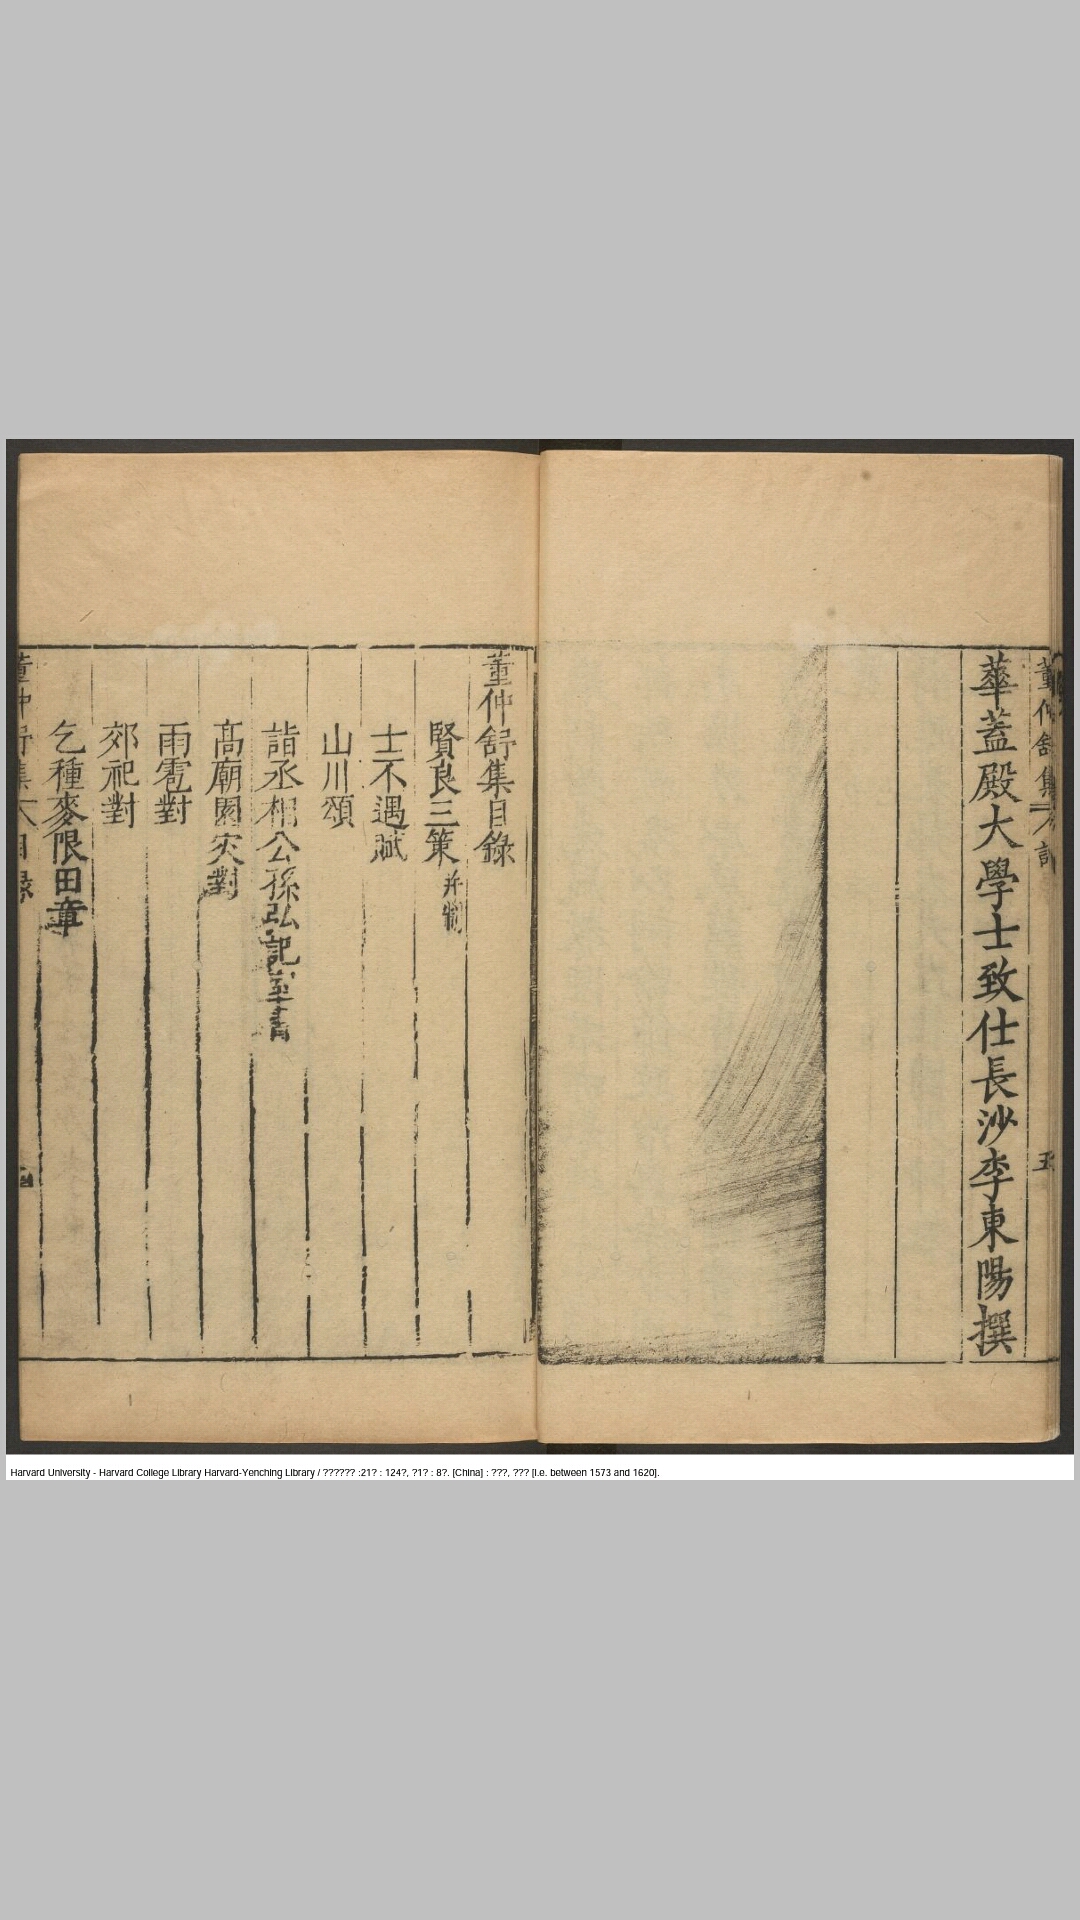 董仲舒集
五
華蓋殿大學士致仕長沙李東陽撰
董仲舒集目錄
賢良三策并制
士不遇賦
山川頌
詣丞相公孫弘記室書
髙廟園災對
雨雹對
郊祀對
乞種麥限田章
Harvard University - Harvard College Library Harvard-Yenching Library / ?????? :21? : 124?, ?1? : 8?. [China] : ???, ??? [i.e. between 1573 and 1620].